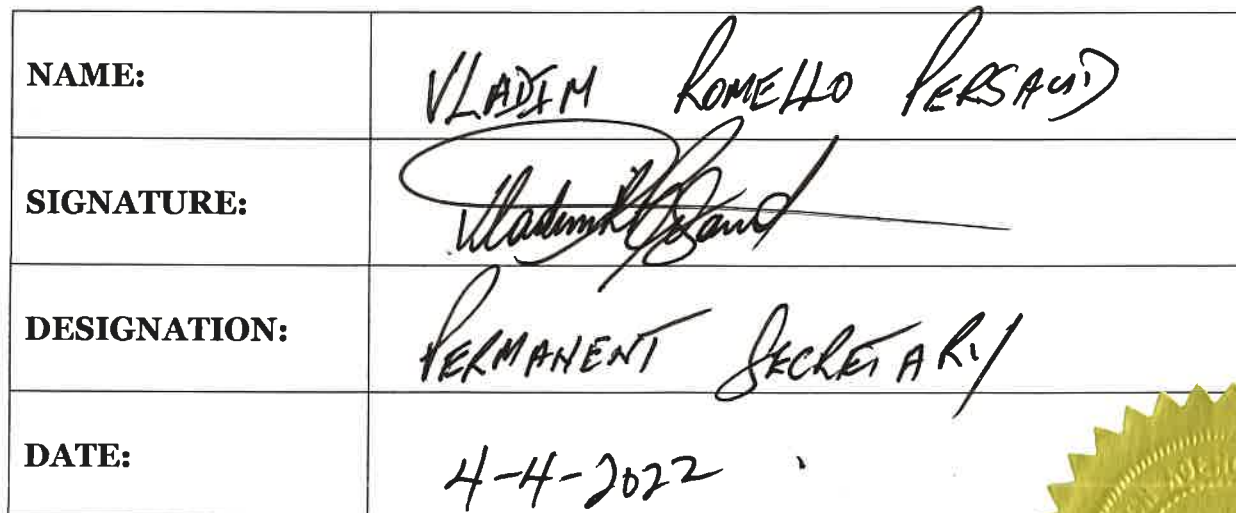 NAME: VLADIM ROMELLO PERSAUD
SIGNATURE:
DESIGNATION: PERMANENT SECRETARY
DATE: 4-4-2022